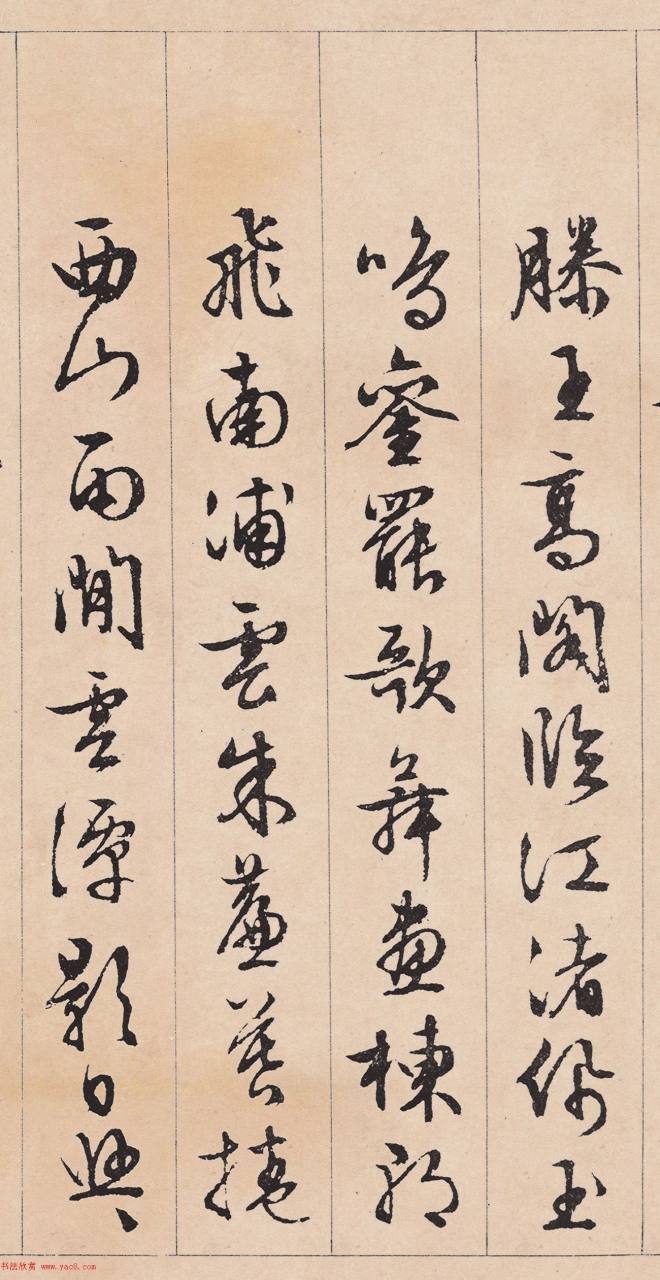 滕王高閣臨江渚佩玉
鳴鑾罷歌舞畫棟朝
飛南浦雲朱簾暮捲
西山雨閒雲潭影日悠〻
书法欣赏 www.yac8.com